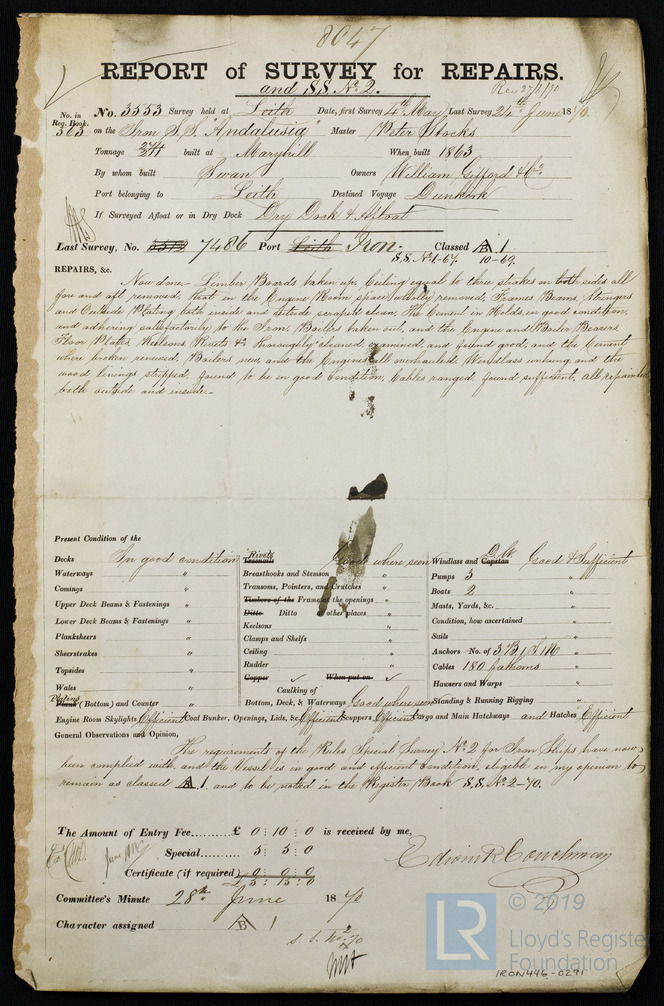 8047
REPORT of SURVEY for REPAIRS.
and S.S. No 2. Rec 27/6/70
No. in Reg. Book. 563
No. 3553 Survey held at Leith Date, first Survey 4th May Last Survey 24th June 1870.
on the Iron S.S. "Andalusia" Master Peter Stocks
Tonnage built at Maryhill When built 1863
By whom built Swan Owners William Gifford & Co.
Port belonging to Leith Destined Voyage Dunkirk
If Surveyed Afloat or in Dry Dock Dry Dock & Afloat
Last Survey, No. 7486 Port Leith Iron. Classed A 1
S.S. No 1-67. 10-69.
REPAIRS, &c.
Now done.- Limber Boards taken up, Ceiling equal to three strakes on both sides all
for and aft removed, that in the Engine Room space wholly removed, Frames Beams, Stringers
and Outside Plating both inside and outside scraped clean, The Cement in Holds in good condition,
and adhering satisfactorily to the Iron, Boilers taken out, and the Engine and Boiler Bearers
Floor Plates, Keelsons Rivets &c thoroughly cleaned, examined, and found good, and the Cement
where broken renewed, Boilers new, and the Engines all overhauled, Windlass unhung and the
wood linings stripped, found to be in good Condition, Cables ranged, found sufficient, All repainted
both outside and inside.-
Present Condition of the
Decks In good condition
Waterways "
Comings "
Upper Deck Beams & Fastenings "
Lower Deck Beams & Fastenings "
Planksheers "
Sheerstrakes "
Topsides "
Wales "
Plating
Plank (Bottom) and Counter "
Rivets
Treenails Good where seen
Breasthooks and Stemson "
Transoms, Pointers, and Crutches "
Timbers of the Frame at the openings "
Ditto Ditto other places "
Keelsons "
Clamps and Shelfs "
Ceiling "
Rudder "
Copper ✓ When put on ✓
Caulking of
Bottom, Deck, & Waterways Good where seen
Windlass and Capstan Good & Sufficient
Pumps 3 "
Boats 2 "
Masts, Yards, &c. "
Condition, how ascertained "
Sails "
Anchors No. of 3 B, 1 S, 1 K "
Cables 180 fathoms "
Hawsers and Warps "
Standing & Running Rigging "
Engine Room Skylights Efficient Coal Bunker, Openings, Lids, &c. Efficient Scuppers Efficient Cargo and Main Hatchways and Hatches Efficient
General Observations and Opinion,
The requirements of the Rules Special Survey No 2 for Iron Ships have now
been complied with, and the Vessel is in good and efficient condition, eligible in my opinion to
remain as classed A 1, and to be noted in the Register Book S.S. No 2-70.
The Amount of Entry Fee...... £ 0 : 10 : 0 is received by me,
Special......... 5 : 5 : 0
Edwin R Couchman
Certificate (if required) 0 : 0 : 0
£ 5 : 15 : 0
Committee's Minute 28th June 1870
Character assigned B 1
S.S. No 2 70
© 2019
LR
Lloyd's Register
Foundation
IRON446-0291